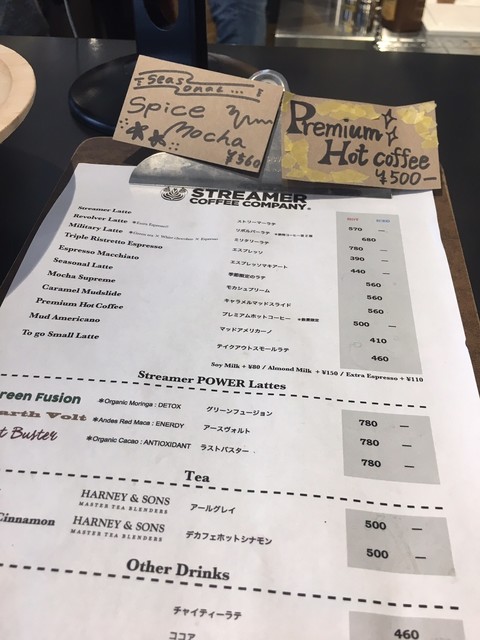 Seasonal...
Spice
Mocha
¥560
Premium
Hot coffee
¥500-
STREAMER
COFFEE COMPANY
Streamer Latte ストリーマーラテ 570 —
Revolver Latte リボルバーラテ 680
Military Latte ミリタリーラテ 780 —
Triple Ristretto Espresso エスプレッソ 390 —
Espresso Macchiato エスプレッソマキアート 440 —
Seasonal Latte 季節限定のラテ 560
Mocha Supreme モカシュプリーム 560
Caramel Mudslide キャラメルマッドスライド 560
Premium Hot Coffee プレミアムホットコーヒー ※数量限定 500 —
Mud Americano マッドアメリカーノ 410
To go Small Latte テイクアウトスモールラテ 460
Soy Milk + ¥80 / Almond Milk + ¥150 / Extra Espresso + ¥110
Streamer POWER Lattes
reen Fusion ※Organic Moringa : DETOX グリーンフュージョン 780 —
arth Volt ※Andes Red Maca : ENERDY アースヴォルト 780 —
t Buster ※Organic Cacao : ANTIOXIDANT ラストバスター 780 —
Tea
HARNEY & SONS
MASTER TEA BLENDERS
アールグレイ 500 —
Cinnamon HARNEY & SONS
MASTER TEA BLENDERS
デカフェホットシナモン 500 —
Other Drinks
チャイティーラテ 460
ココア